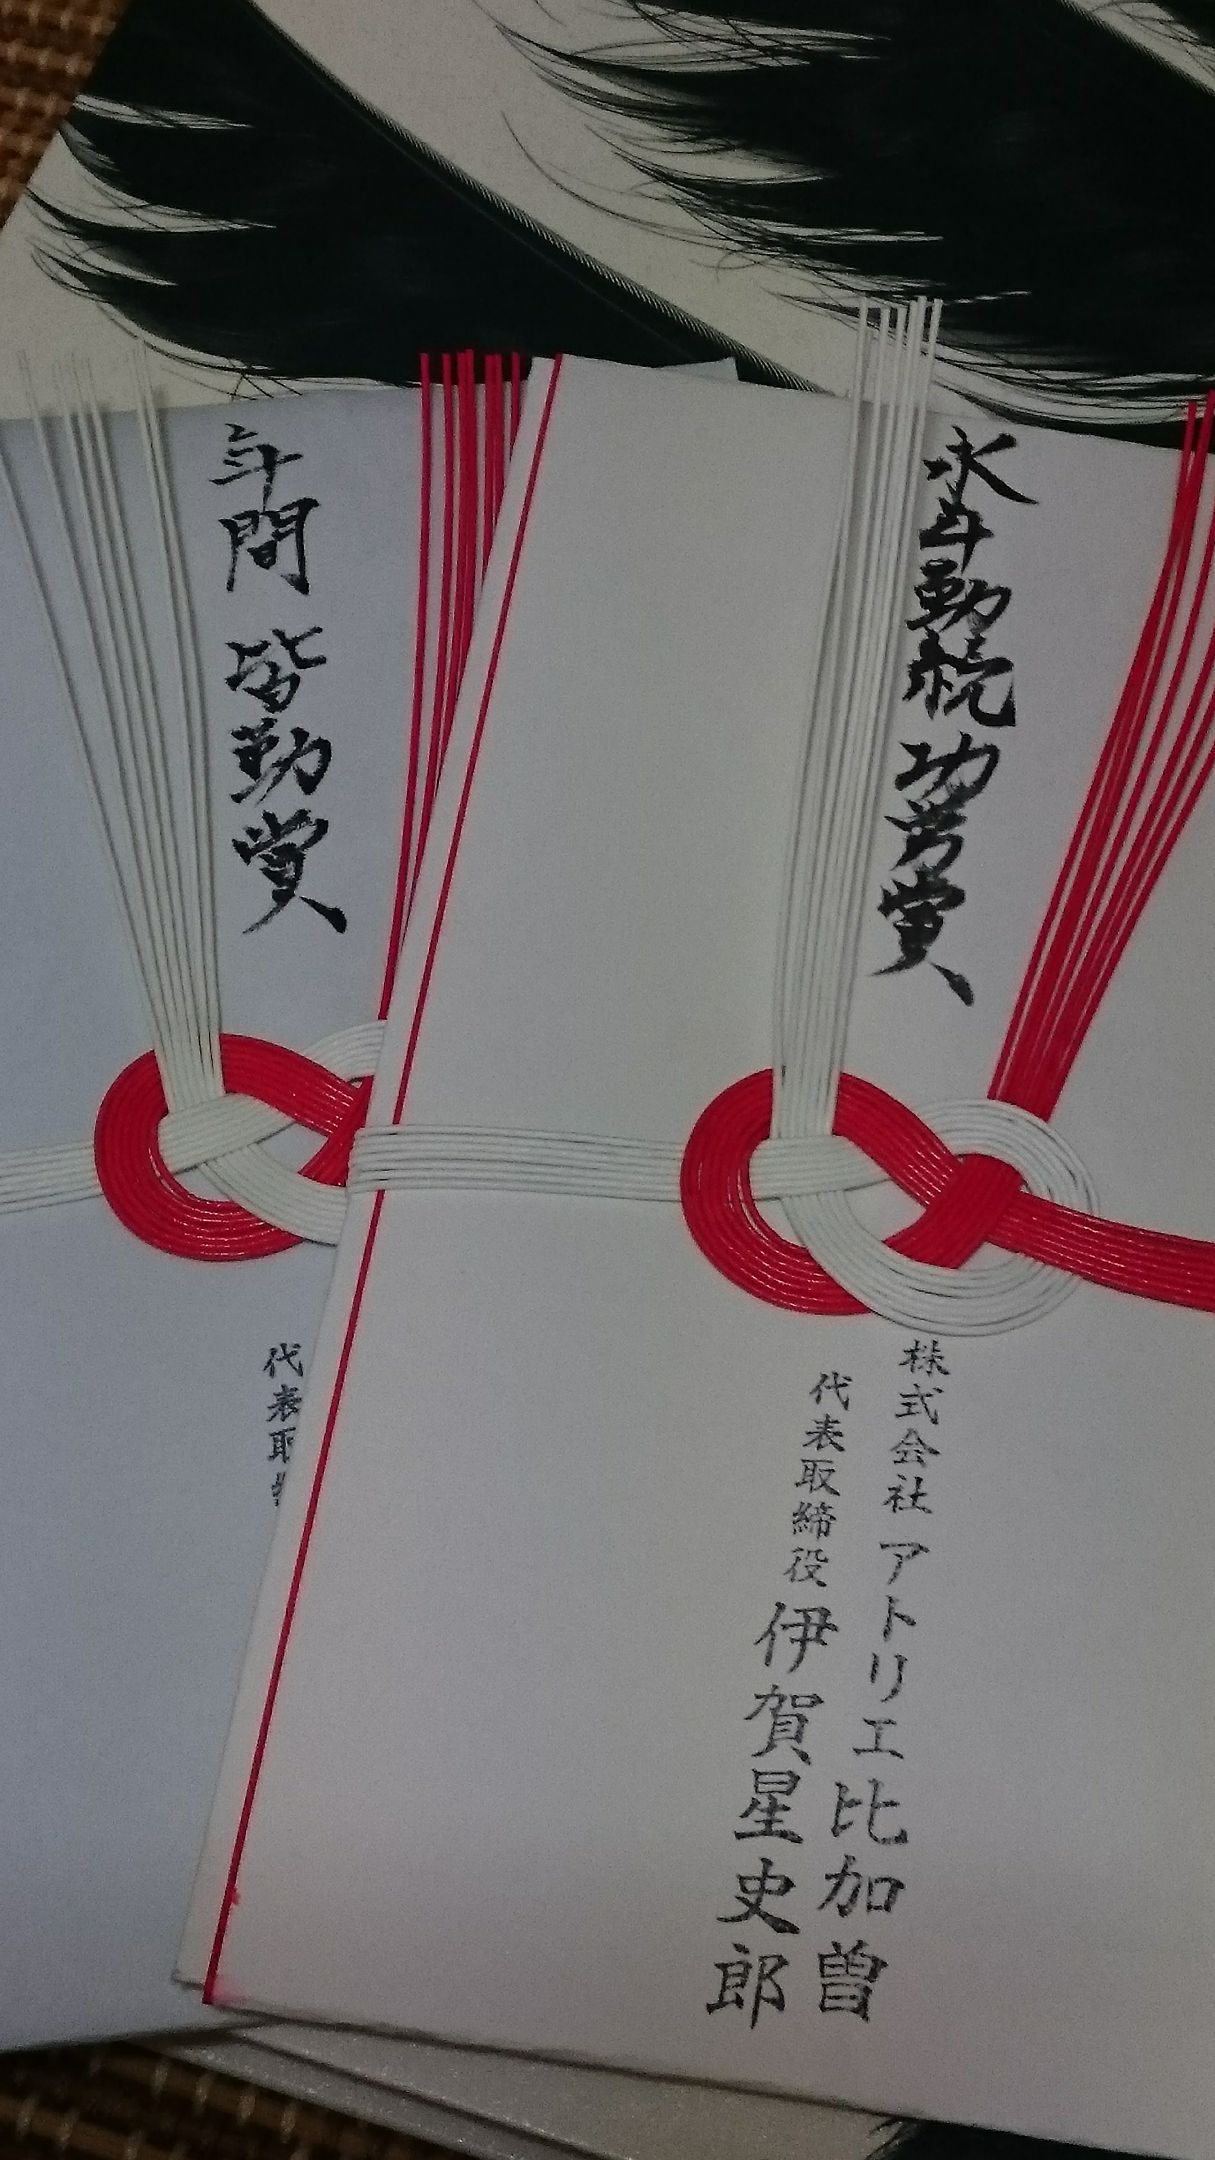 永年勤続功労賞
株式会社 アトリエ比加曽
代表取締役 伊賀星史郎
年間 皆勤賞
代表取